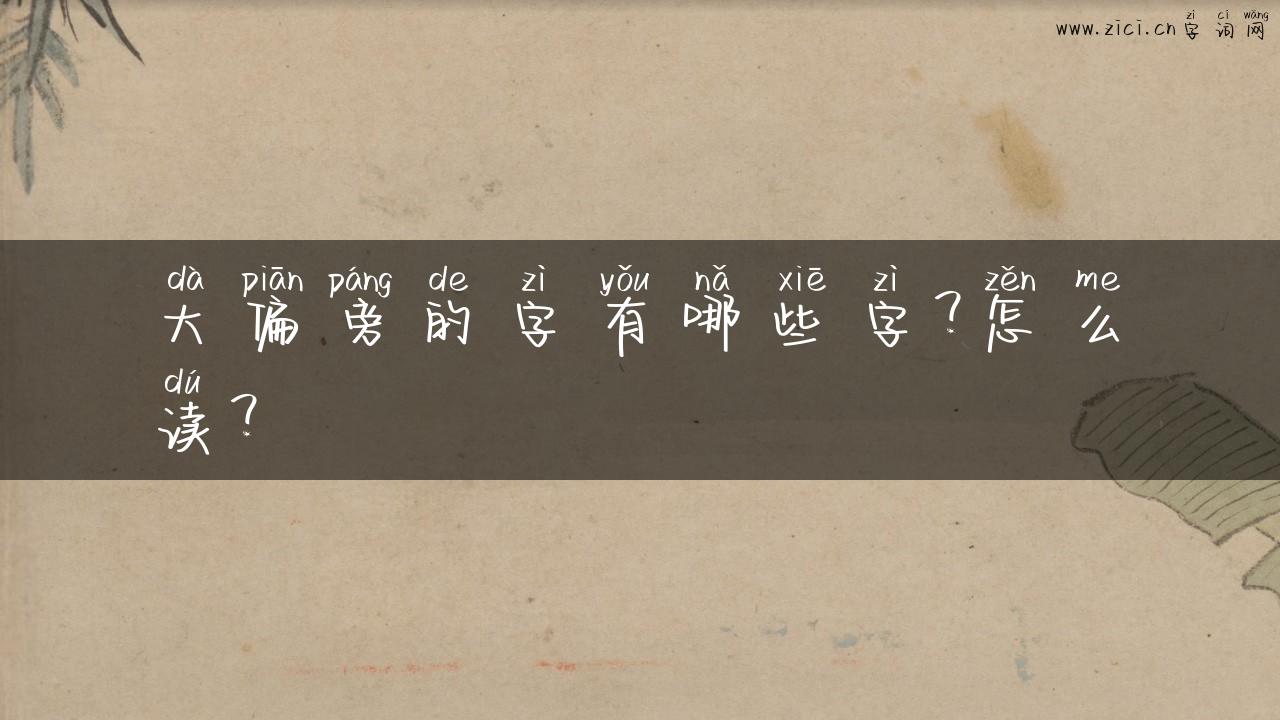 zì cí wǎng
www.zici.cn 字词网
dà piān páng de zì yǒu nǎ xiē zì zěn me
大偏旁的字有哪些字?怎么
dú
读?